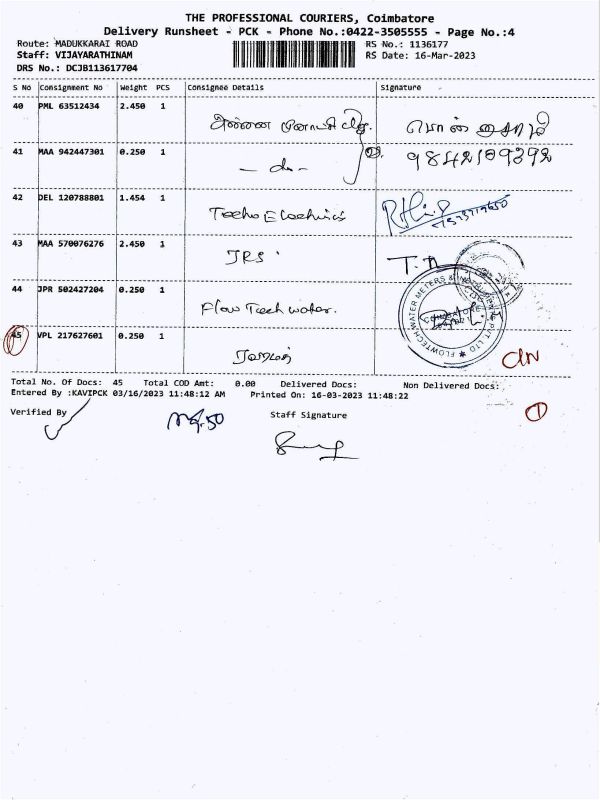 THE PROFESSIONAL COURIERS, Coimbatore
Delivery Runsheet - PCK - Phone No.:0422-3505555 - Page No.:4
Route: MADUKKARAI ROAD
RS No.: 1136177
Staff: VIJAYARATHINAM
RS Date: 16-Mar-2023
DRS No.: DCJB113617704
S No Consignment No Weight PCS Consignee Details Signature
40 PML 63512434 2.450 1
41 MAA 942447301 0.250 1 - do - 9842109392
42 DEL 120788801 1.454 1 Techo Electronics
43 MAA 570076276 2.450 1 JRS T.N
44 JPR 502427204 0.250 1 Flow Tech water. FLOWTECH WATER METERS & PVT LTD COIMBATORE
45 VPL 217627601 0.250 1
Total No. Of Docs: 45 Total COD Amt: 0.00 Delivered Docs: Non Delivered Docs:
Entered By :KAVIPCK 03/16/2023 11:48:12 AM Printed On: 16-03-2023 11:48:22
Verified By
Staff Signature
1